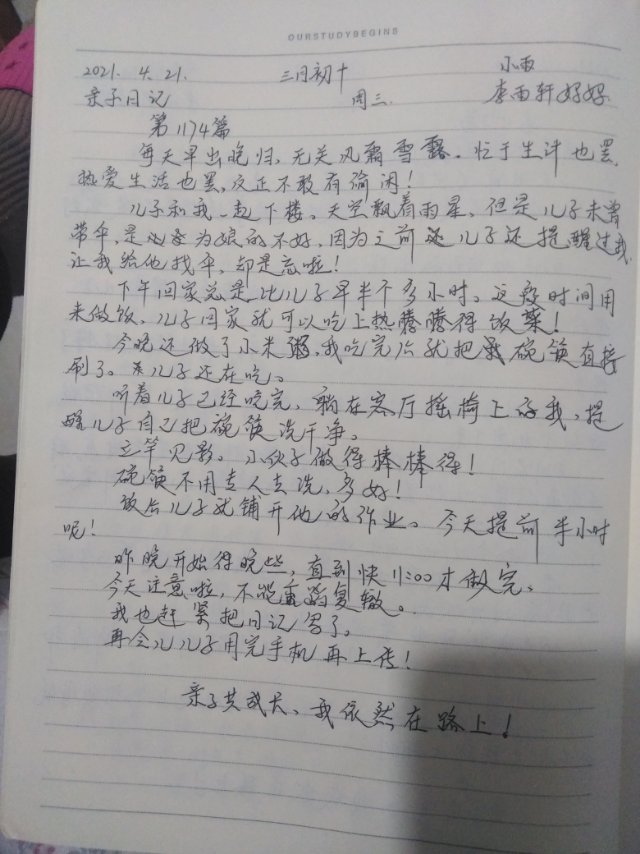 OURSTUDYBEGINS
2021. 4. 21. 三月初十 小雨
亲子日记 周三. 李雨轩妈妈
第1174篇
每天早出晚归，无关风霜雪露。忙于生计也罢，
热爱生活也罢，反正不敢有偷闲！
儿子和我一起下楼。天空飘着雨星，但是儿子未曾
带伞，是为娘的不好，因为之前儿子还提醒过我，
让我给他找伞，却是忘啦！
下午回家总是比儿子早半个多小时。这段时间用
来做饭，儿子回家就可以吃上热腾腾得饭菜！
今晚还做了小米粥，我吃完后就把碗筷直接
刷了。儿子还在吃。
听着儿子已经吃完，躺在客厅摇椅上的我，提
醒儿子自己把碗筷洗干净。
立竿见影。小伙子做得棒棒得！
碗筷不用专人去洗，多好！
饭后儿子就铺开他的作业。今天提前半小时
呢！
昨晚开始得晚些，直到快11:00才做完。
今天注意啦，不能重蹈复辙。
我也赶紧把日记写了。
再会儿儿子用完手机再上传！
亲子共成长、我依然在路上！